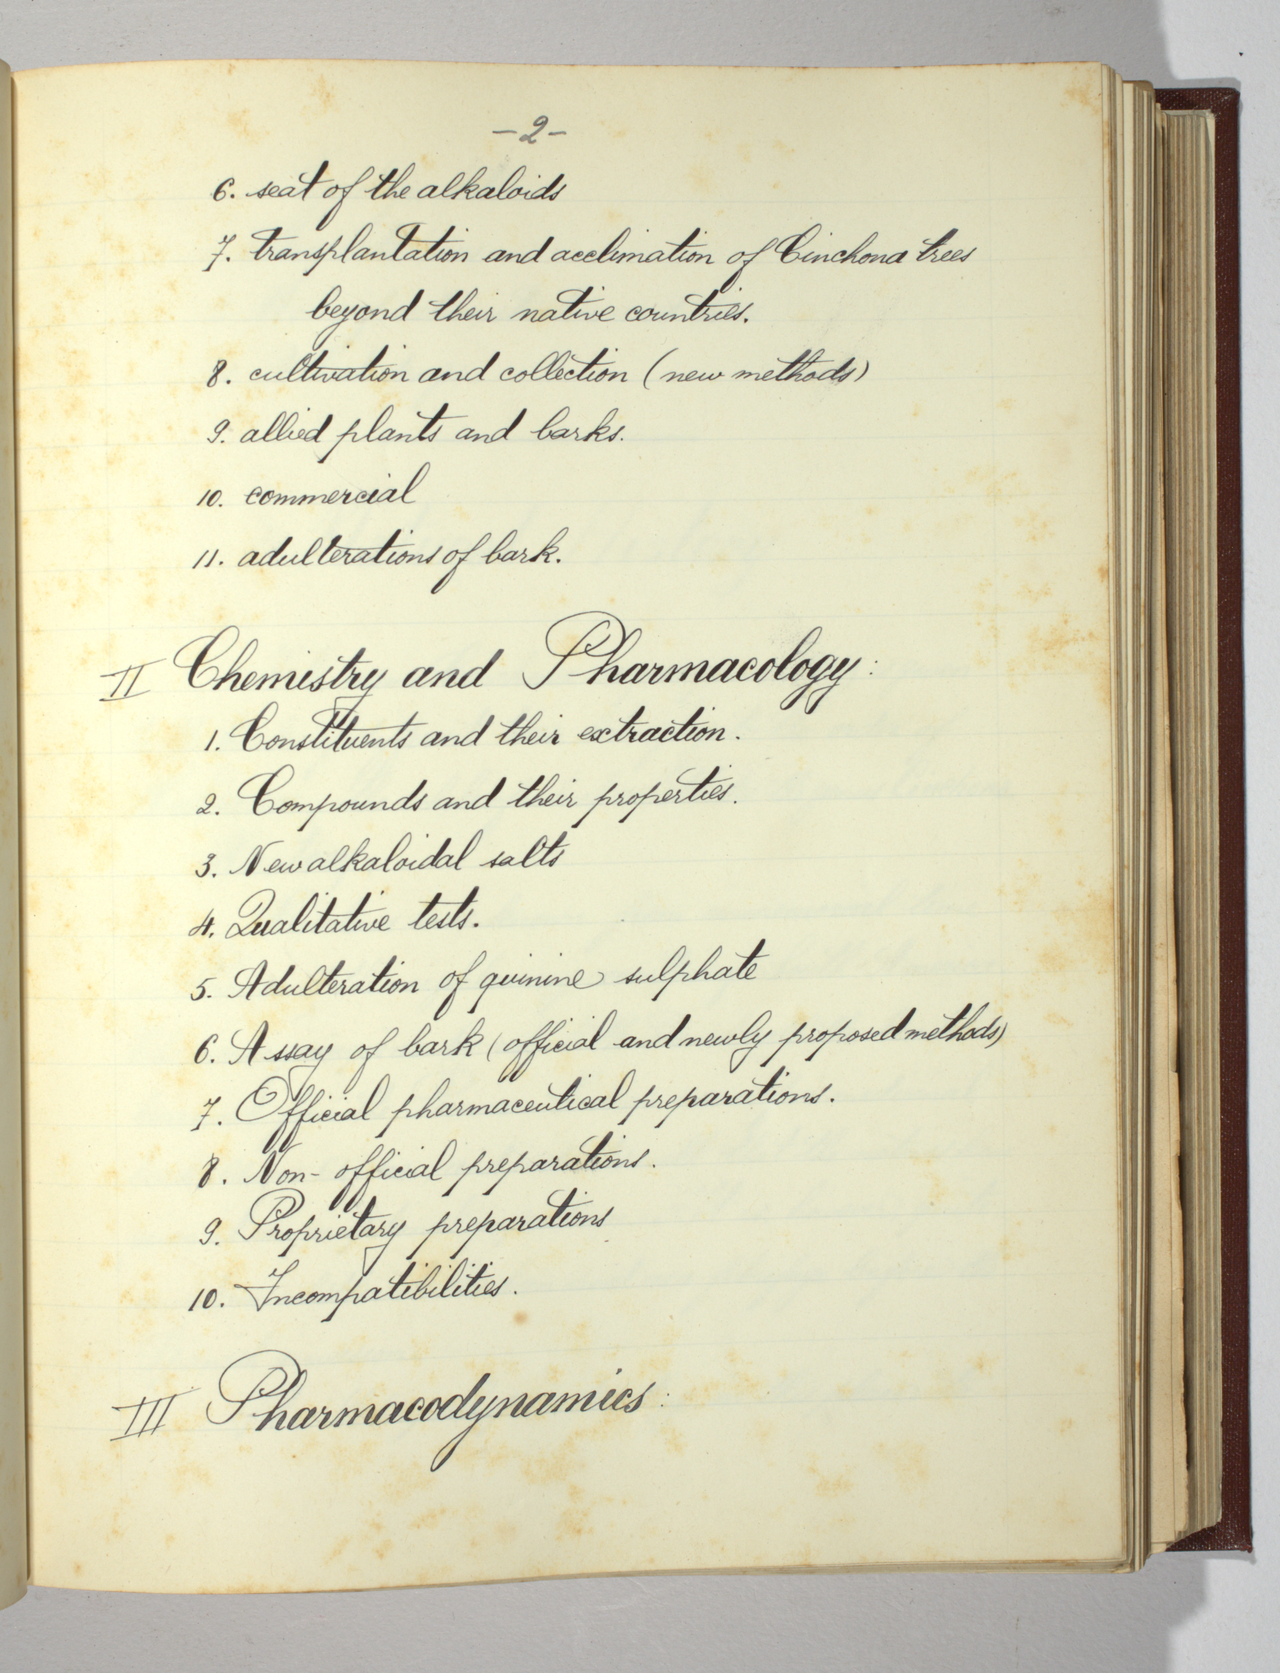 -2-
6. seat of the alkaloids
7. transplantation and acclimation of Cinchona trees
beyond their native countries.
8. cultivation and collection (new methods)
9. allied plants and barks.
10. commercial
11. adulterations of bark.
II Chemistry and Pharmacology:
1. Constituents and their extraction.
2. Compounds and their properties.
3. New alkaloidal salts
4. Qualitative tests.
5. Adulteration of quinine sulphate
6. Assay of bark (official and newly proposed methods)
7. Official pharmaceutical preparations.
8. Non-official preparations.
9. Proprietary preparations
10. Incompatibilities.
III Pharmacodynamics: